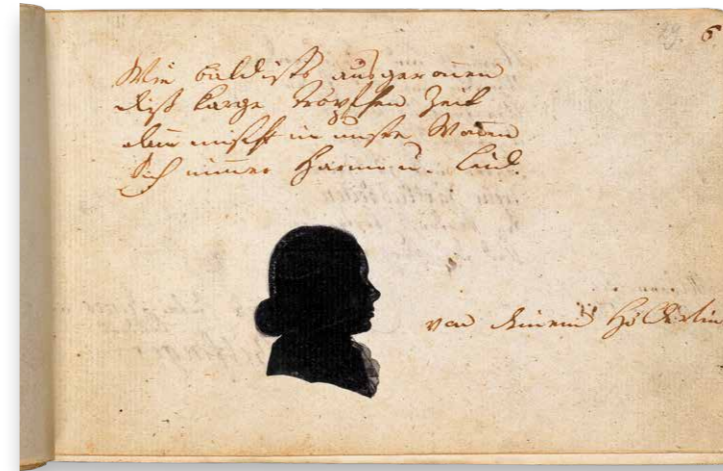 6
Wie bald ists ausgeronnen
Diß karge Tröpfchen Zeit
dann mischt in unsre Wonnen
Sich nimmer Harm u. Leid.
von deinem Hölderlin